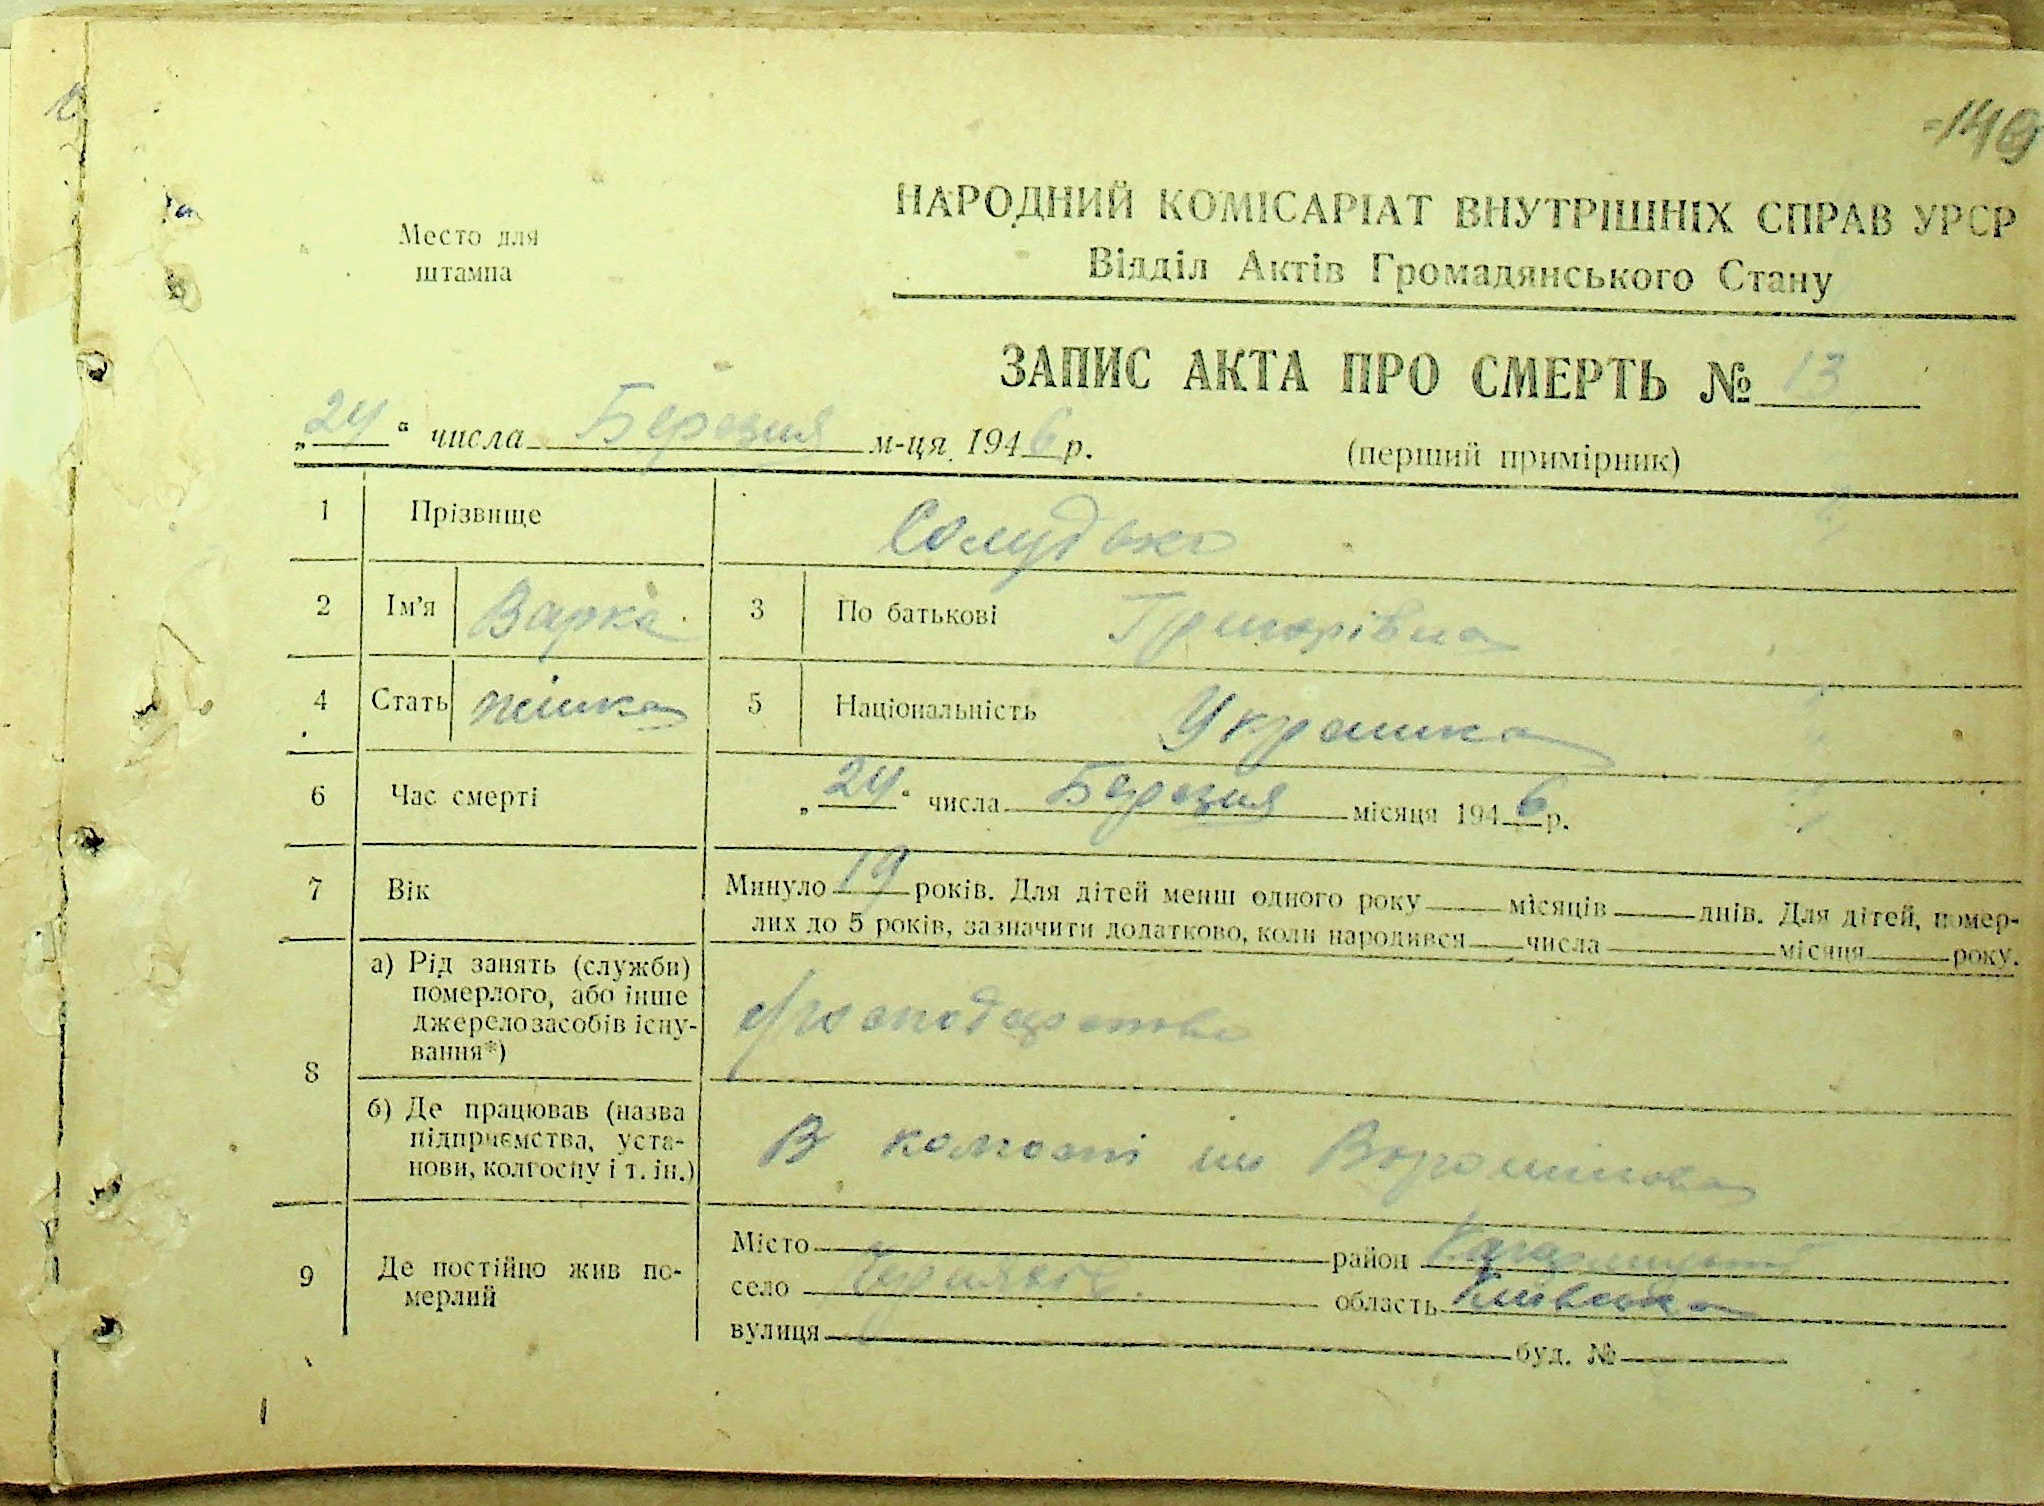 -149
Место для
штампа
НАРОДНИЙ КОМІСАРІАТ ВНУТРІШНІХ СПРАВ УРСР
Відділ Актів Громадянського Стану
ЗАПИС АКТА ПРО СМЕРТЬ № 13
„24“ числа Березня м-ця 1946 р.
(перший примірник)
1 Прізвище Солудько
2 Ім'я Варка 3 По батькові Григорівна
4 Стать жінка 5 Національність Украинка
6 Час смерті „24“ числа Березня місяця 1946 р.
7 Вік Минуло 19 років. Для дітей менш одного року місяців днів. Для дітей, помер-
лих до 5 років, зазначити додатково, коли народився числа місяця року.
8 а) Рід занять (служби)
померлого, або інше
джерело засобів існу-
вання*)
б) Де працював (назва
підприємства, уста-
нови, колгоспу і т. ін.)
В колгоспі ім Ворошилова
9 Де постійно жив по-
мерлий
Місто район Кагарлицький
село Черняхів область Київська
вулиця буд. №